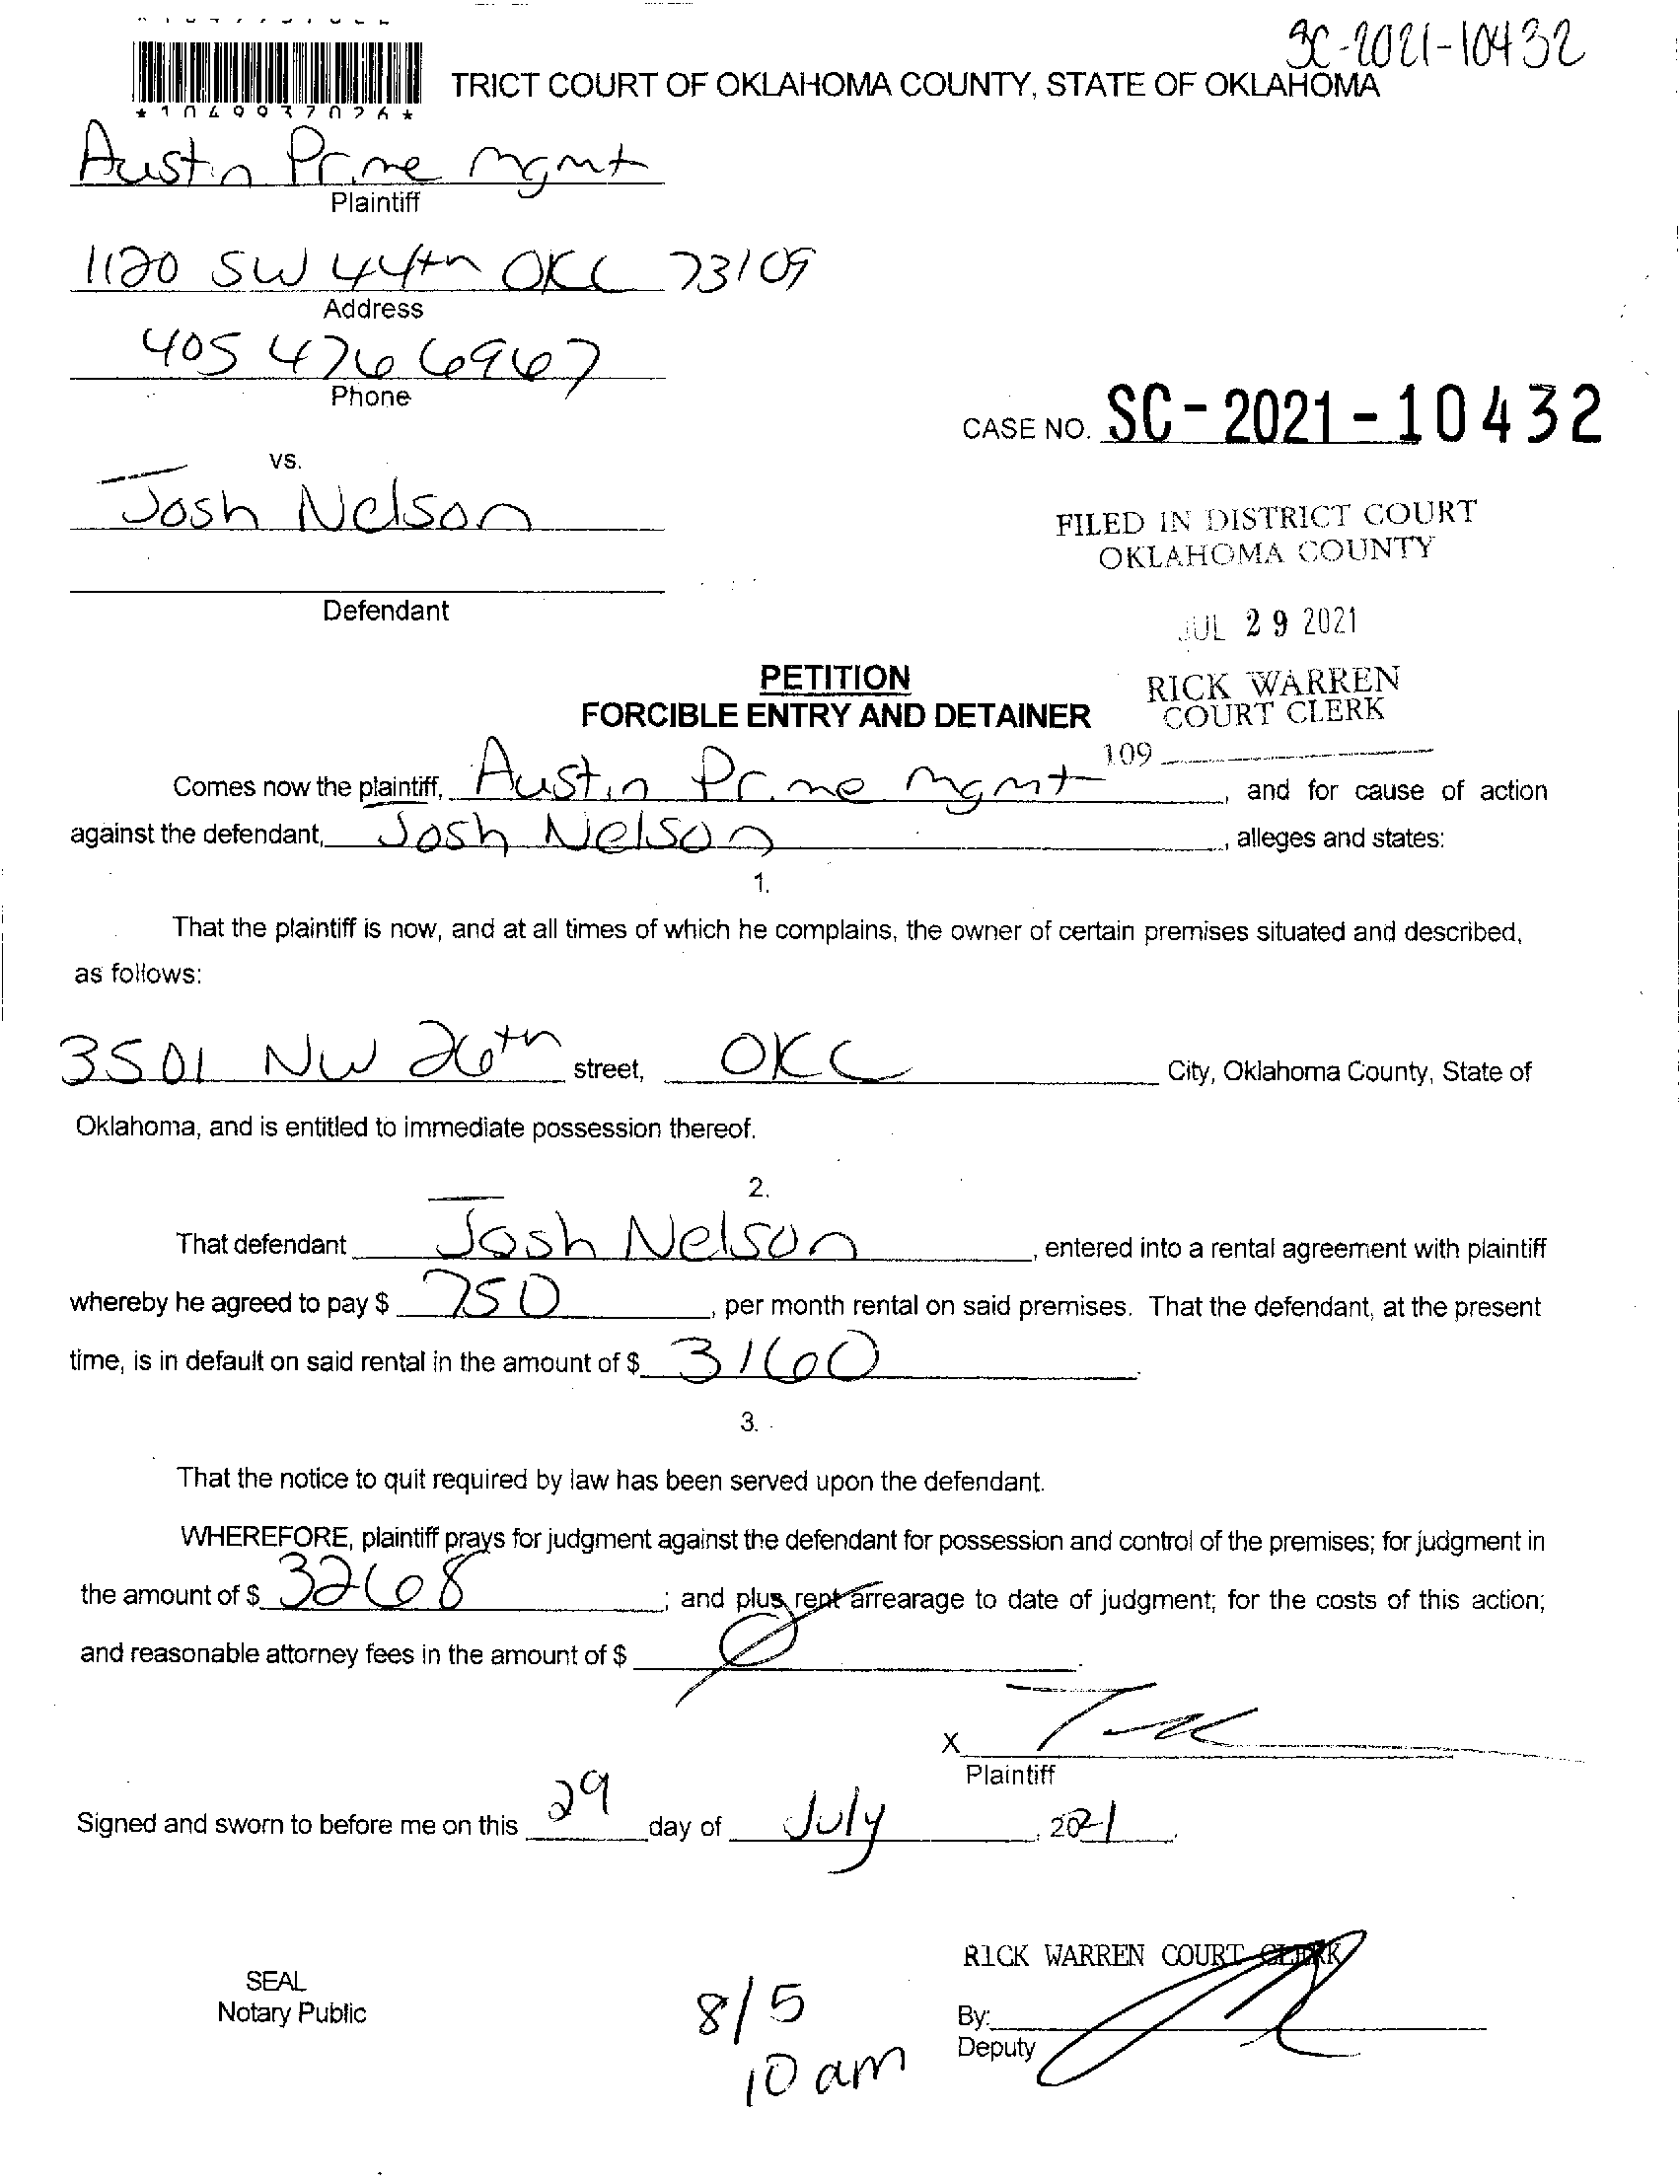 SC-2021-10432
TRICT COURT OF OKLAHOMA COUNTY, STATE OF OKLAHOMA
*1049937026*
Austin Prime Mgmt
Plaintiff
1120 SW 44th OKC 73109
Address
405 476 6967
Phone
CASE NO. SC-2021-10432
vs.
Josh Nelson
FILED IN DISTRICT COURT
OKLAHOMA COUNTY
Defendant
JUL 29 2021
PETITION
RICK WARREN
FORCIBLE ENTRY AND DETAINER
COURT CLERK
109
Comes now the plaintiff, Austin Prime Mgmt, and for cause of action
against the defendant, Josh Nelson, alleges and states:
1.
That the plaintiff is now, and at all times of which he complains, the owner of certain premises situated and described,
as follows:
3501 NW 26th street, OKC City, Oklahoma County, State of
Oklahoma, and is entitled to immediate possession thereof.
2.
That defendant Josh Nelson, entered into a rental agreement with plaintiff
whereby he agreed to pay $ 750, per month rental on said premises. That the defendant, at the present
time, is in default on said rental in the amount of $ 3160.
3.
That the notice to quit required by law has been served upon the defendant.
WHEREFORE, plaintiff prays for judgment against the defendant for possession and control of the premises; for judgment in
the amount of $ 3268; and plus rent arrearage to date of judgment; for the costs of this action;
and reasonable attorney fees in the amount of $ Ø.
X
Plaintiff
Signed and sworn to before me on this 29 day of July, 2021.
RICK WARREN COURT CLERK
SEAL
Notary Public
8/5
By:
Deputy
10 am